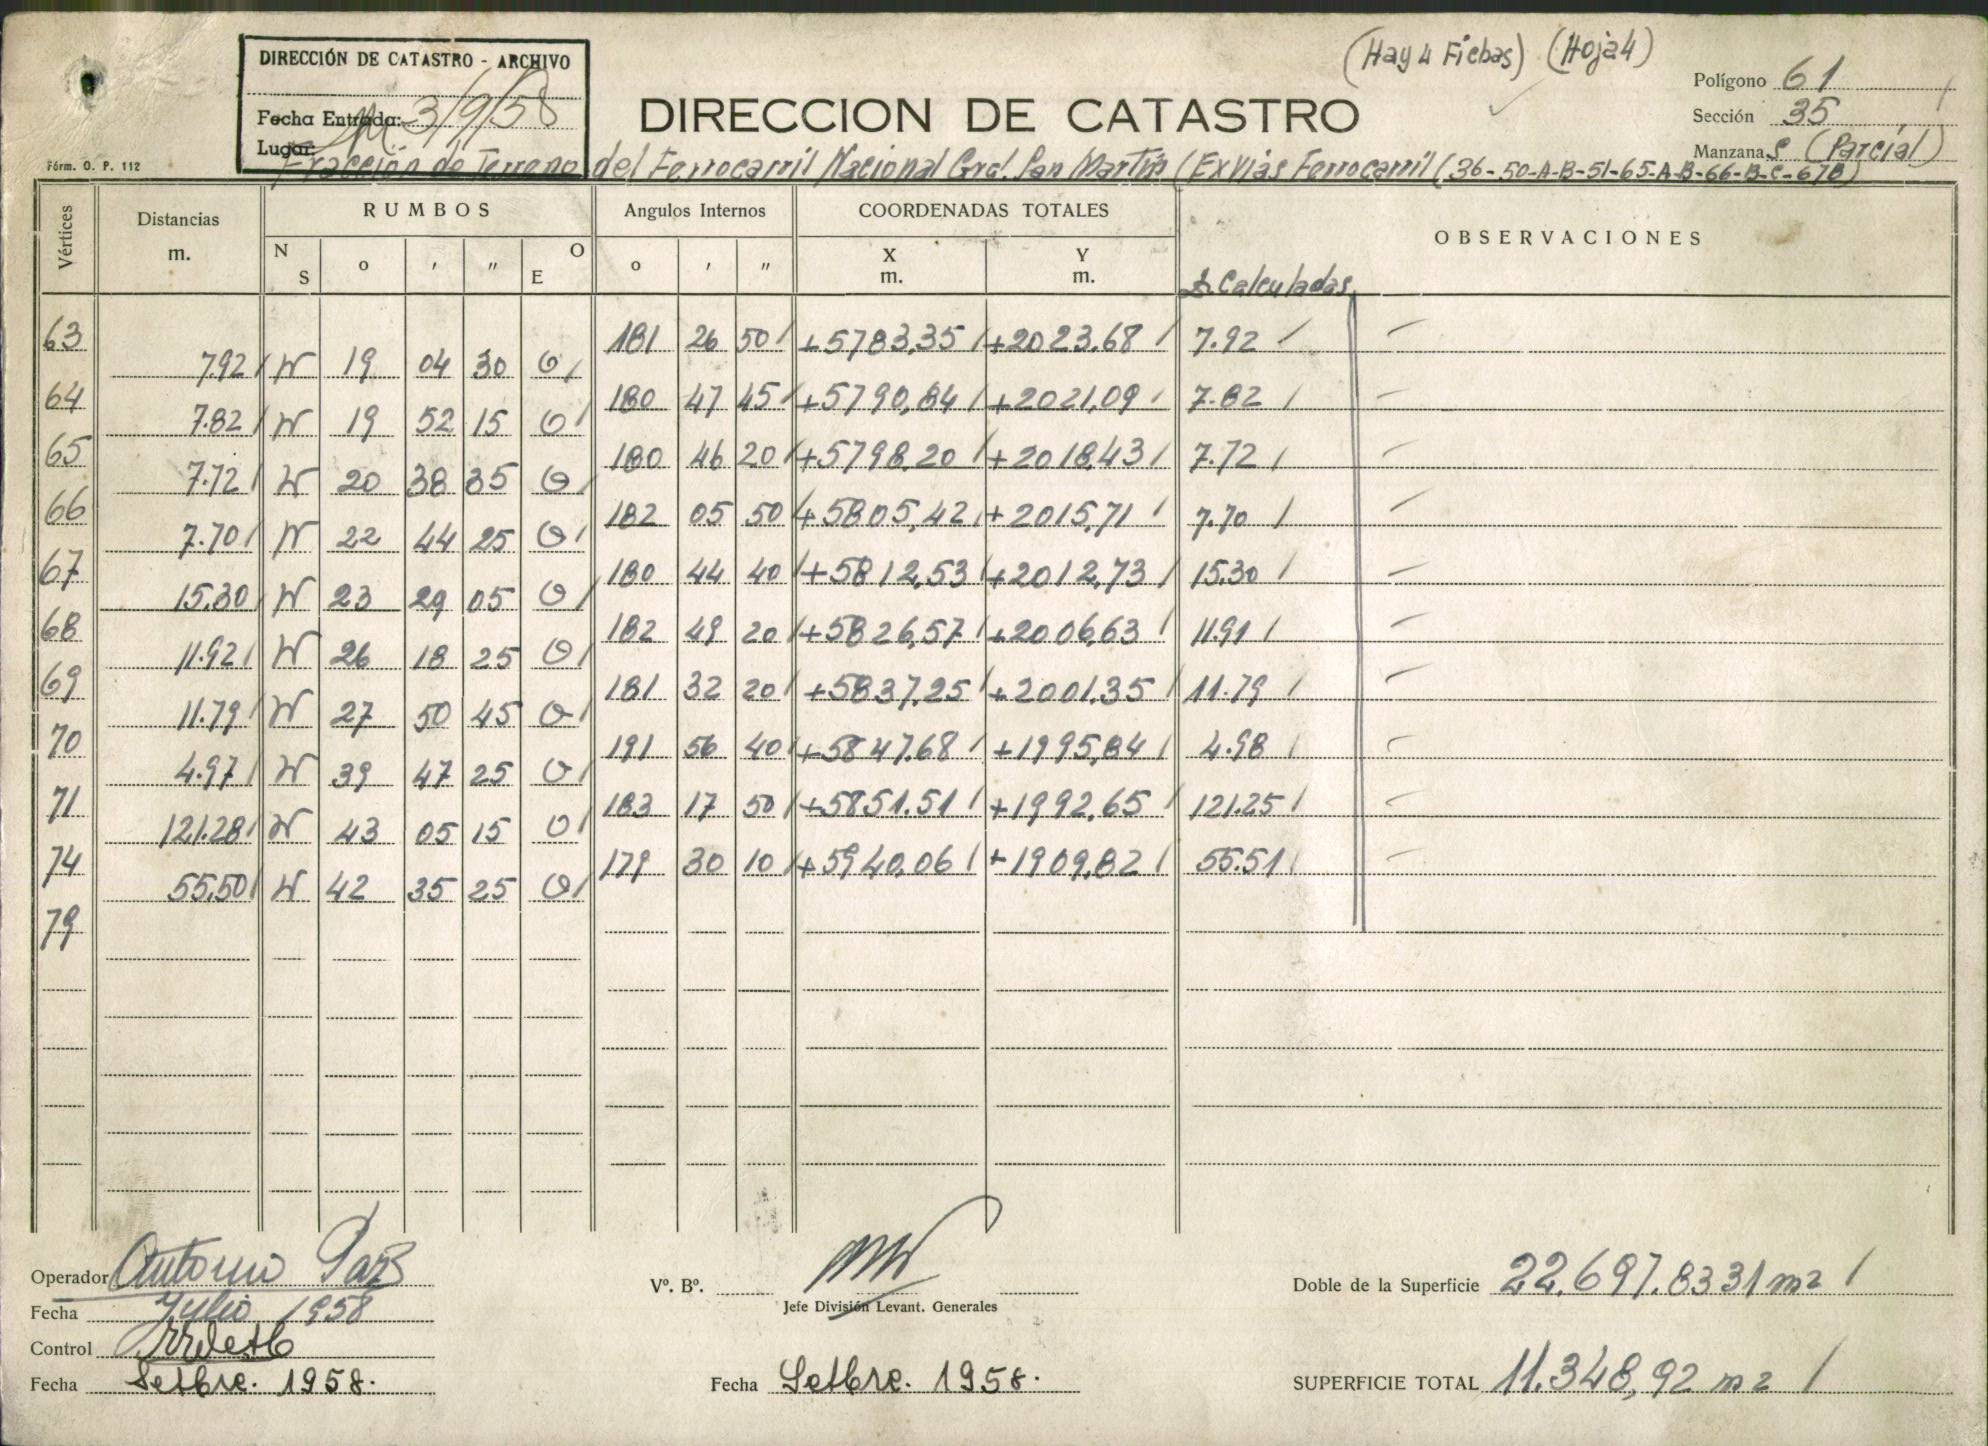 (Hay 4 Fichas) (Hoja 4)
DIRECCIÓN DE CATASTRO - ARCHIVO
Fecha Entrada: 3/9/58
Lugar:
Fórm. O. P. 112
DIRECCION DE CATASTRO
Polígono 61
Sección 35
Manzana S (Parcial)
Fracción de Terreno del Ferrocarril Nacional Gral. San Martín (Ex Vías Ferrocarril (36-50-A-B-51-65-A-B-66-B-C-67B)
Vértices Distancias m. RUMBOS Angulos Internos COORDENADAS TOTALES OBSERVACIONES
N S o ' " O E o ' " X m. Y m. D. Calculadas
63 181 26 50 +5783,35 +2023,68 7.92
7.92 N 19 04 30 O
64 180 47 45 +5790,84 +2021,09 7.82
7.82 N 19 52 15 O
65 180 46 20 +5798,20 +2018,43 7.72
7.72 N 20 38 35 O
66 182 05 50 +5805,42 +2015,71 7.70
7.70 N 22 44 25 O
67 180 44 40 +5812,53 +2012,73 15.30
15.30 N 23 29 05 O
68 182 49 20 +5826,57 +2006,63 11.91
11.92 N 26 18 25 O
69 181 32 20 +5837,25 +2001,35 11.79
11.79 N 27 50 45 O
70 191 56 40 +5847,68 +1995,84 4.98
4.97 N 39 47 25 O
71 183 17 50 +5851.51 +1992,65 121.25
121.28 N 43 05 15 O
74 179 30 10 +5940,06 +1909,82 55.51
55.50 N 42 35 25 O
79
Operador Antonio
Fecha Julio 1958
Control
Fecha Setbre. 1958.
Vº. Bº.
Jefe División Levant. Generales
Fecha Setbre. 1958.
Doble de la Superficie 22.697.8331 m2
SUPERFICIE TOTAL 11.348,92 m2